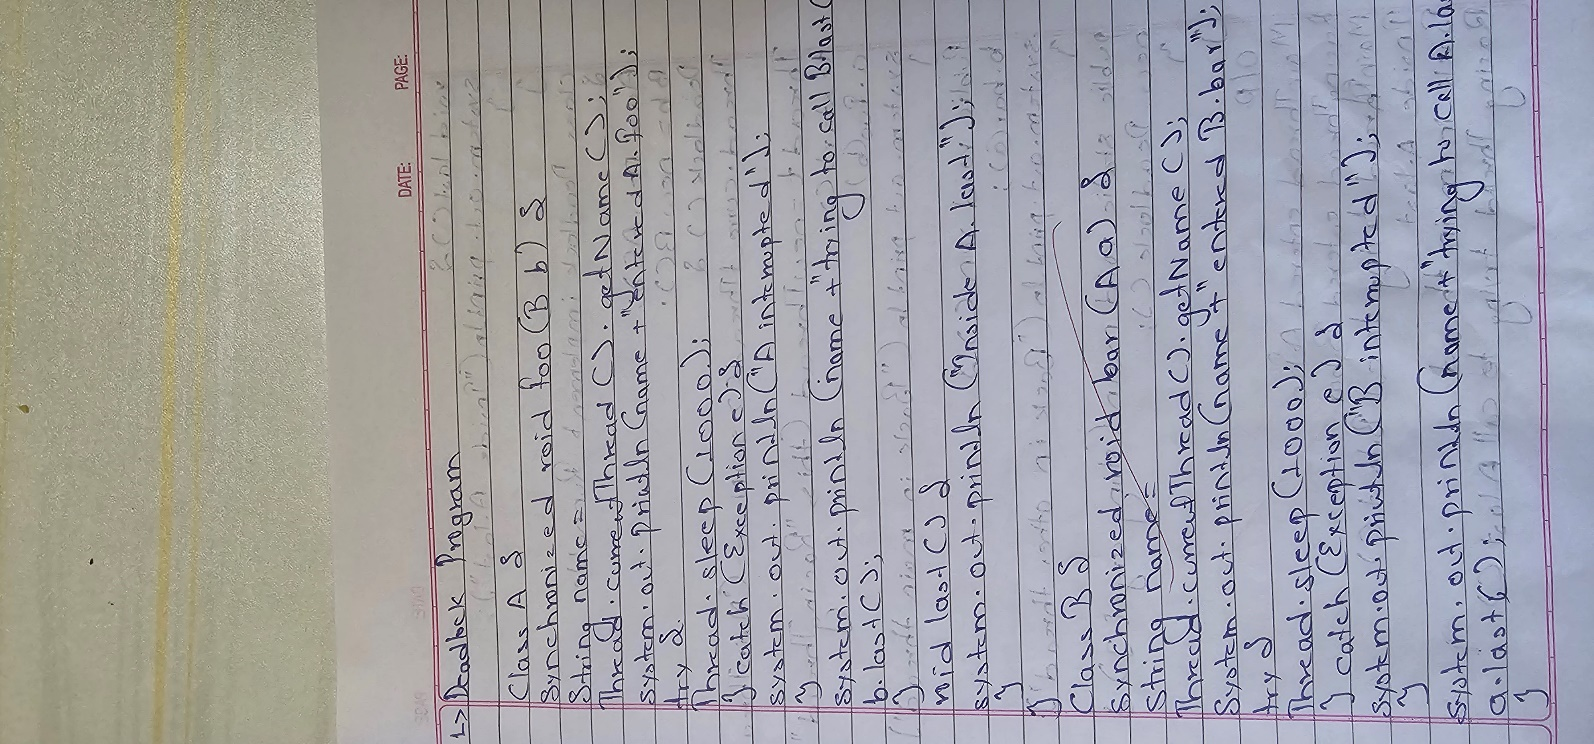 DATE: PAGE:
1-> Deadlock Program
Class A {
Synchronized void foo (B b) {
String name =
Thread.currentThread().getName();
system.out.println(name + "entered A.foo");
try {
Thread.sleep(1000);
} catch (Exception e) {
system.out.println("A interrupted");
}
system.out.println(name + "trying to call B.last(
b.last();
}
void last() {
system.out.println("Inside A.last");
}
}
Class B {
Synchronized void bar (A a) {
String name =
Thread.currentThread().getName();
System.out.println(name + "entered B.bar");
try {
Thread.sleep(1000);
} catch (Exception e) {
system.out.println("B interrupted");
}
system.out.println(name + "trying to call A.la
a.last();
}